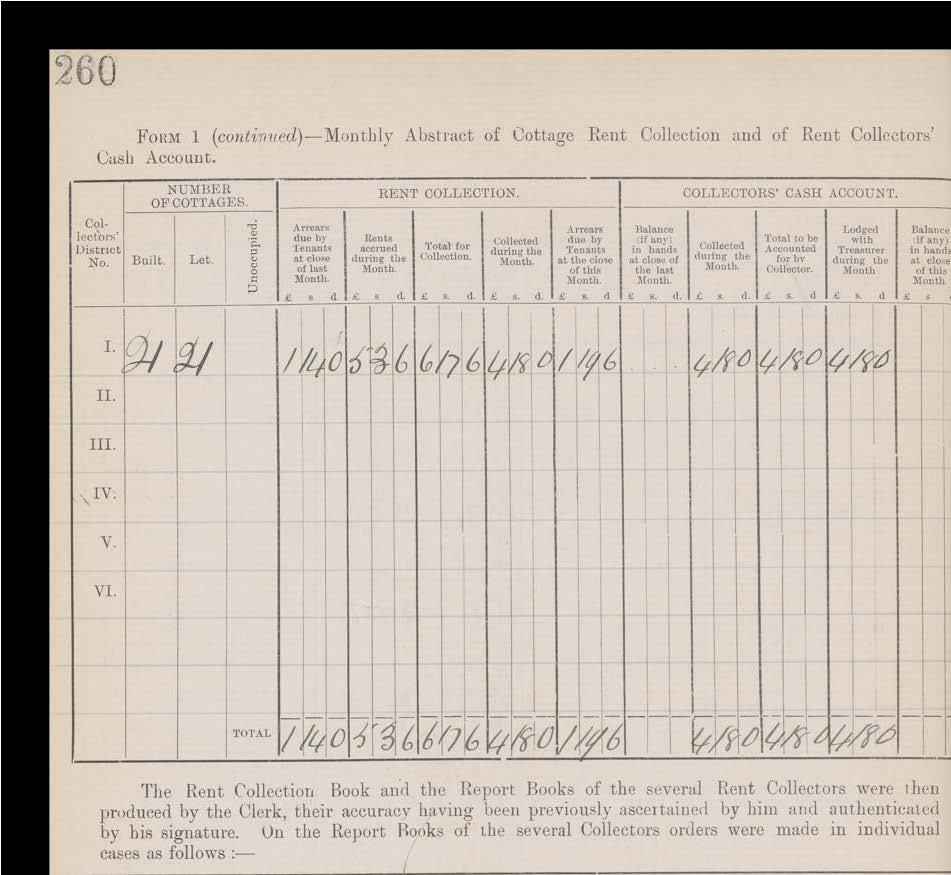 260
FORM 1 (continued)—Monthly Abstract of Cottage Rent Collection and of Rent Collectors'
Cash Account.
Collectors' District No.
NUMBER OF COTTAGES.
Built. Let. Unoccupied.
RENT COLLECTION.
Arrears due by Tenants at close of last Month.
Rents accrued during the Month.
Total for Collection.
Collected during the Month.
Arrears due by Tenants at the close of this Month.
COLLECTORS' CASH ACCOUNT.
Balance (if any) in hands at close of the last Month.
Collected during the Month.
Total to be Accounted for by Collector.
Lodged with Treasurer during the Month
Balance (if any) in hands at close of this Month
£ s d £ s d. £ s. d. £ s. d. £ s. d £ s. d. £ s. d. £ s. d. £ s. d £ s
I. 21 21 1 14 0 5 3 6 6 17 6 4 18 0 1 19 6 . . . 4 18 0 4 18 0 4 18 0
II.
III.
IV.
V.
VI.
TOTAL 1 14 0 5 3 6 6 17 6 4 18 0 1 19 6 4 18 0 4 18 0 4 18 0
The Rent Collection Book and the Report Books of the several Rent Collectors were then
produced by the Clerk, their accuracy having been previously ascertained by him and authenticated
by his signature. On the Report Books of the several Collectors orders were made in individual
cases as follows :—